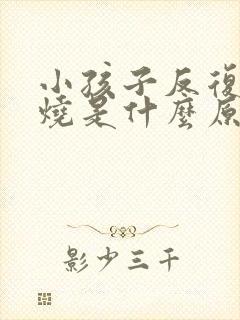 小孩子反復
燒是什麼原
影少三千